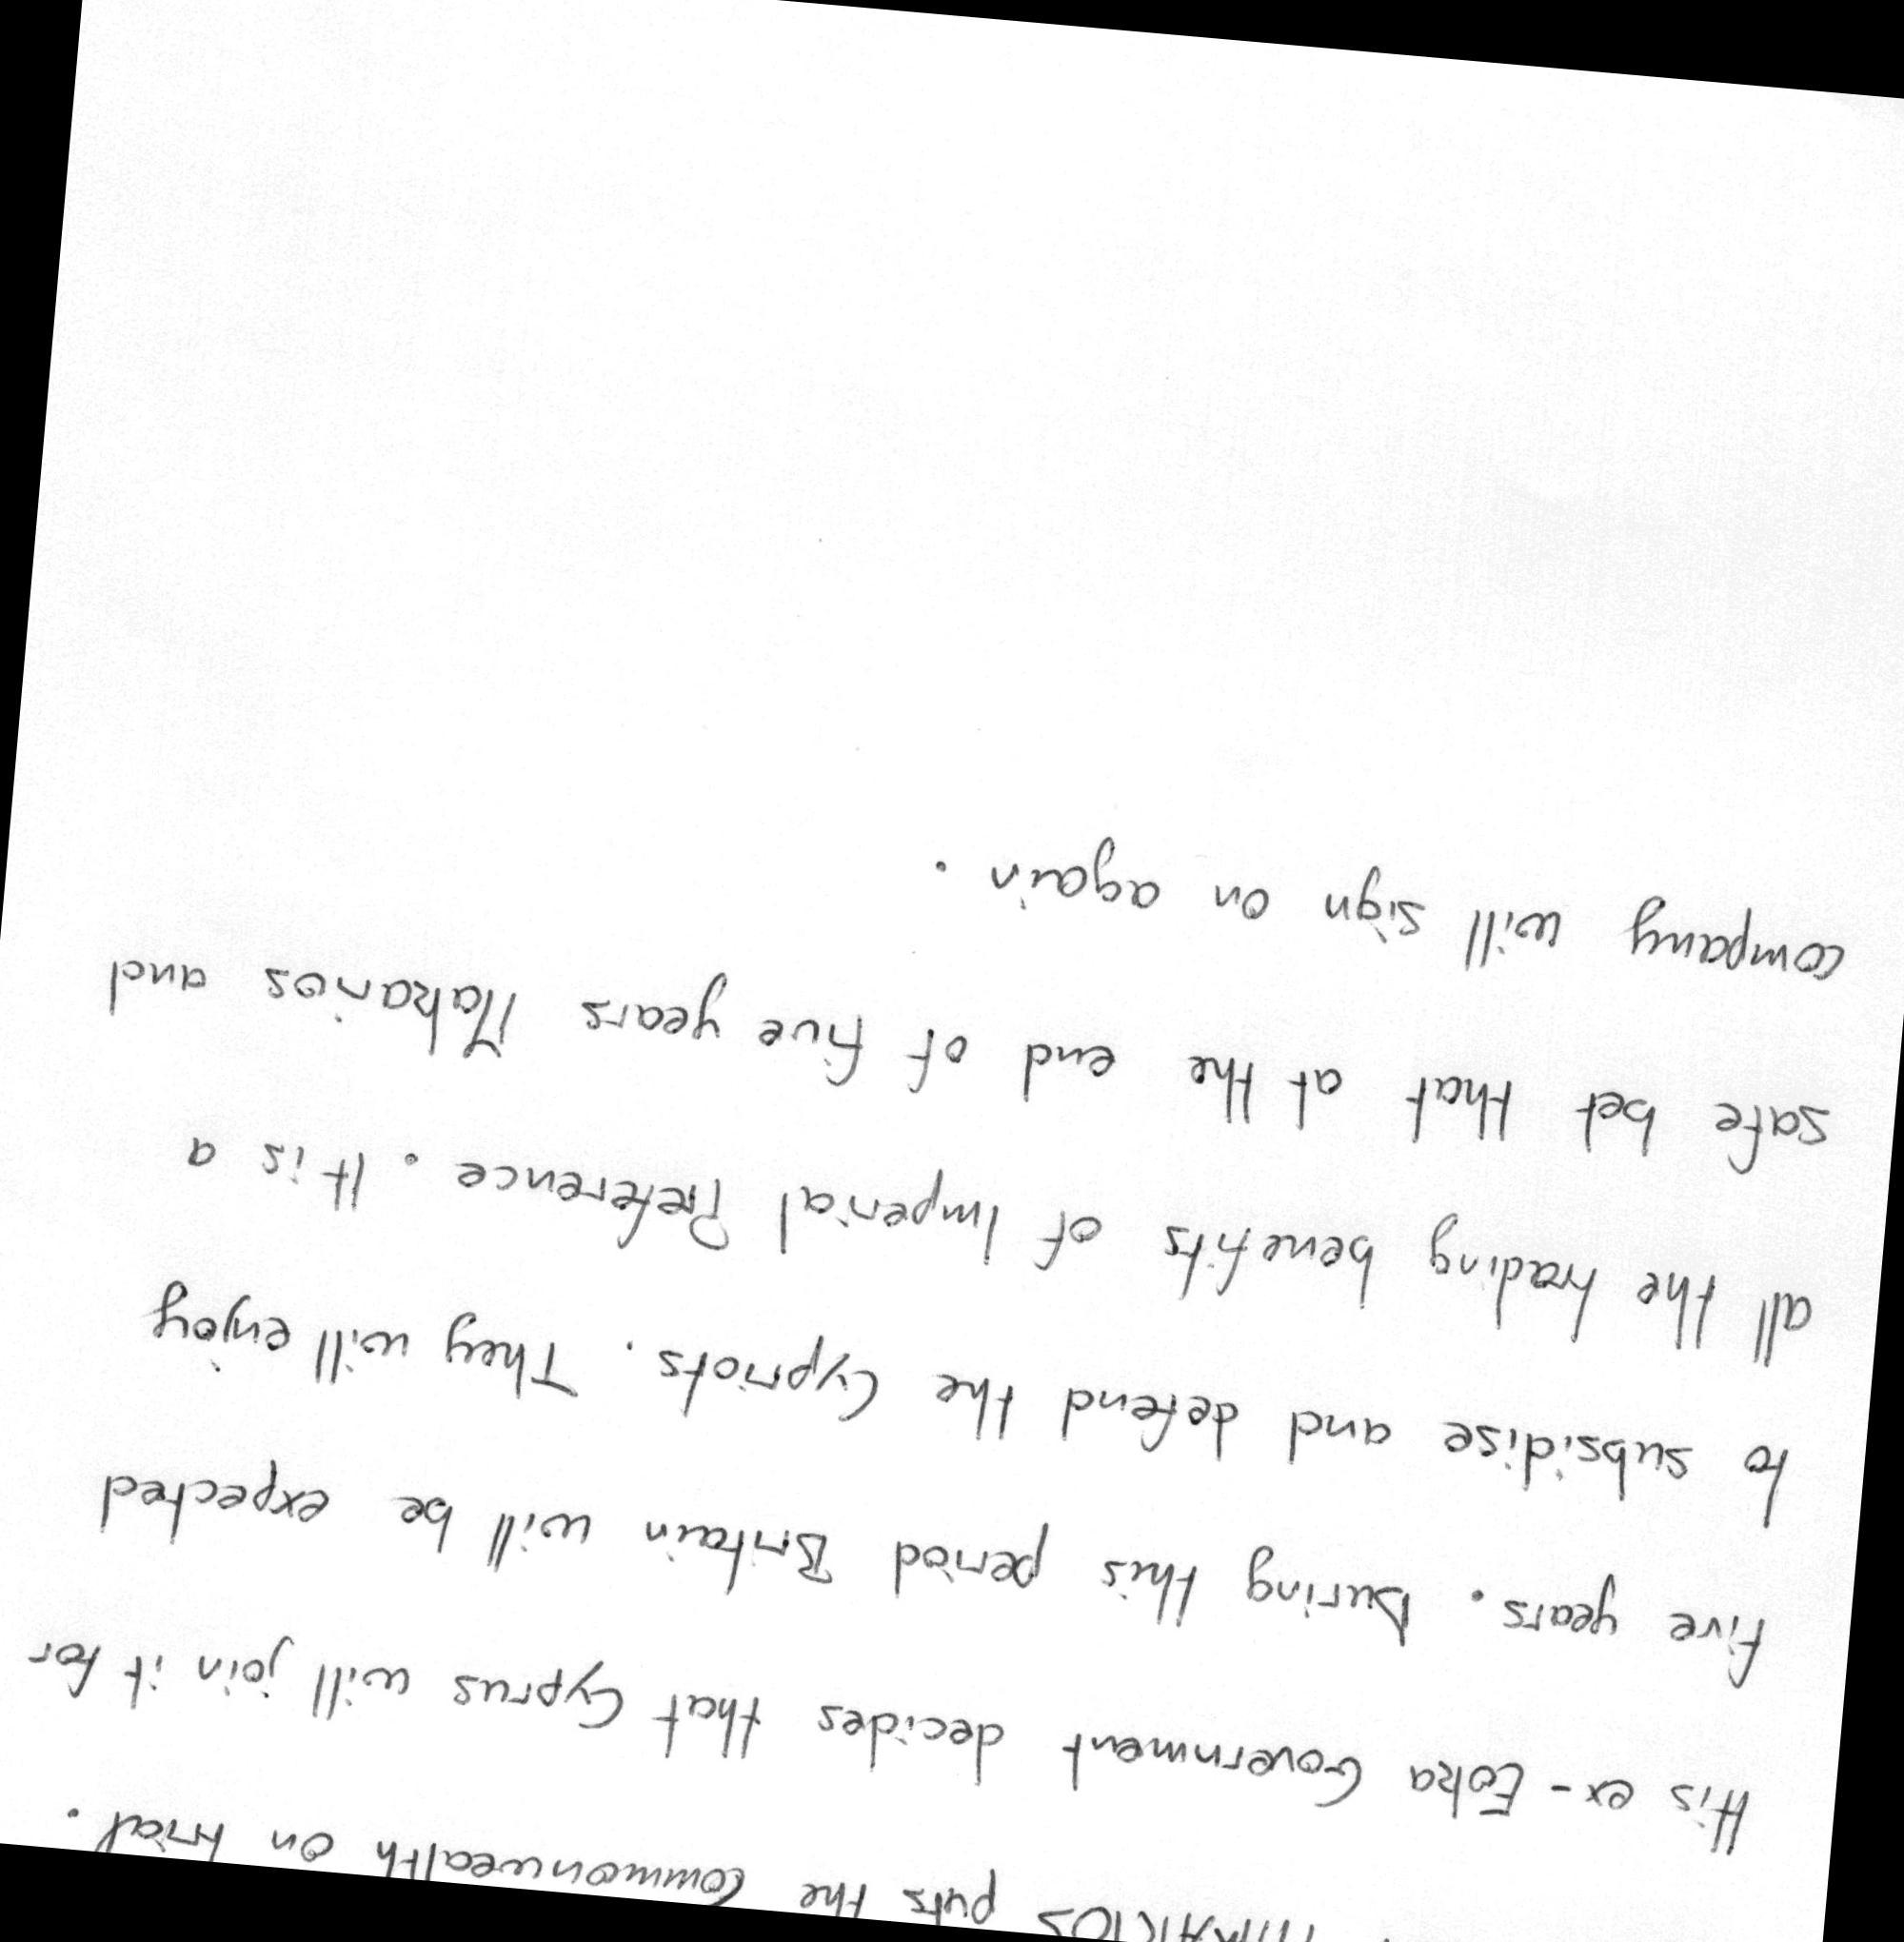 MAKARIOS puts the Commonwealth on trial.
His ex-Eoka Government decides that Cyprus will join it for
five years. During this period Britain will be expected
to subsidise and defend the Cypriots. They will enjoy
all the trading benefits of Imperial Preference. It is a
safe bet that at the end of five years Makarios and
company will sign on again.